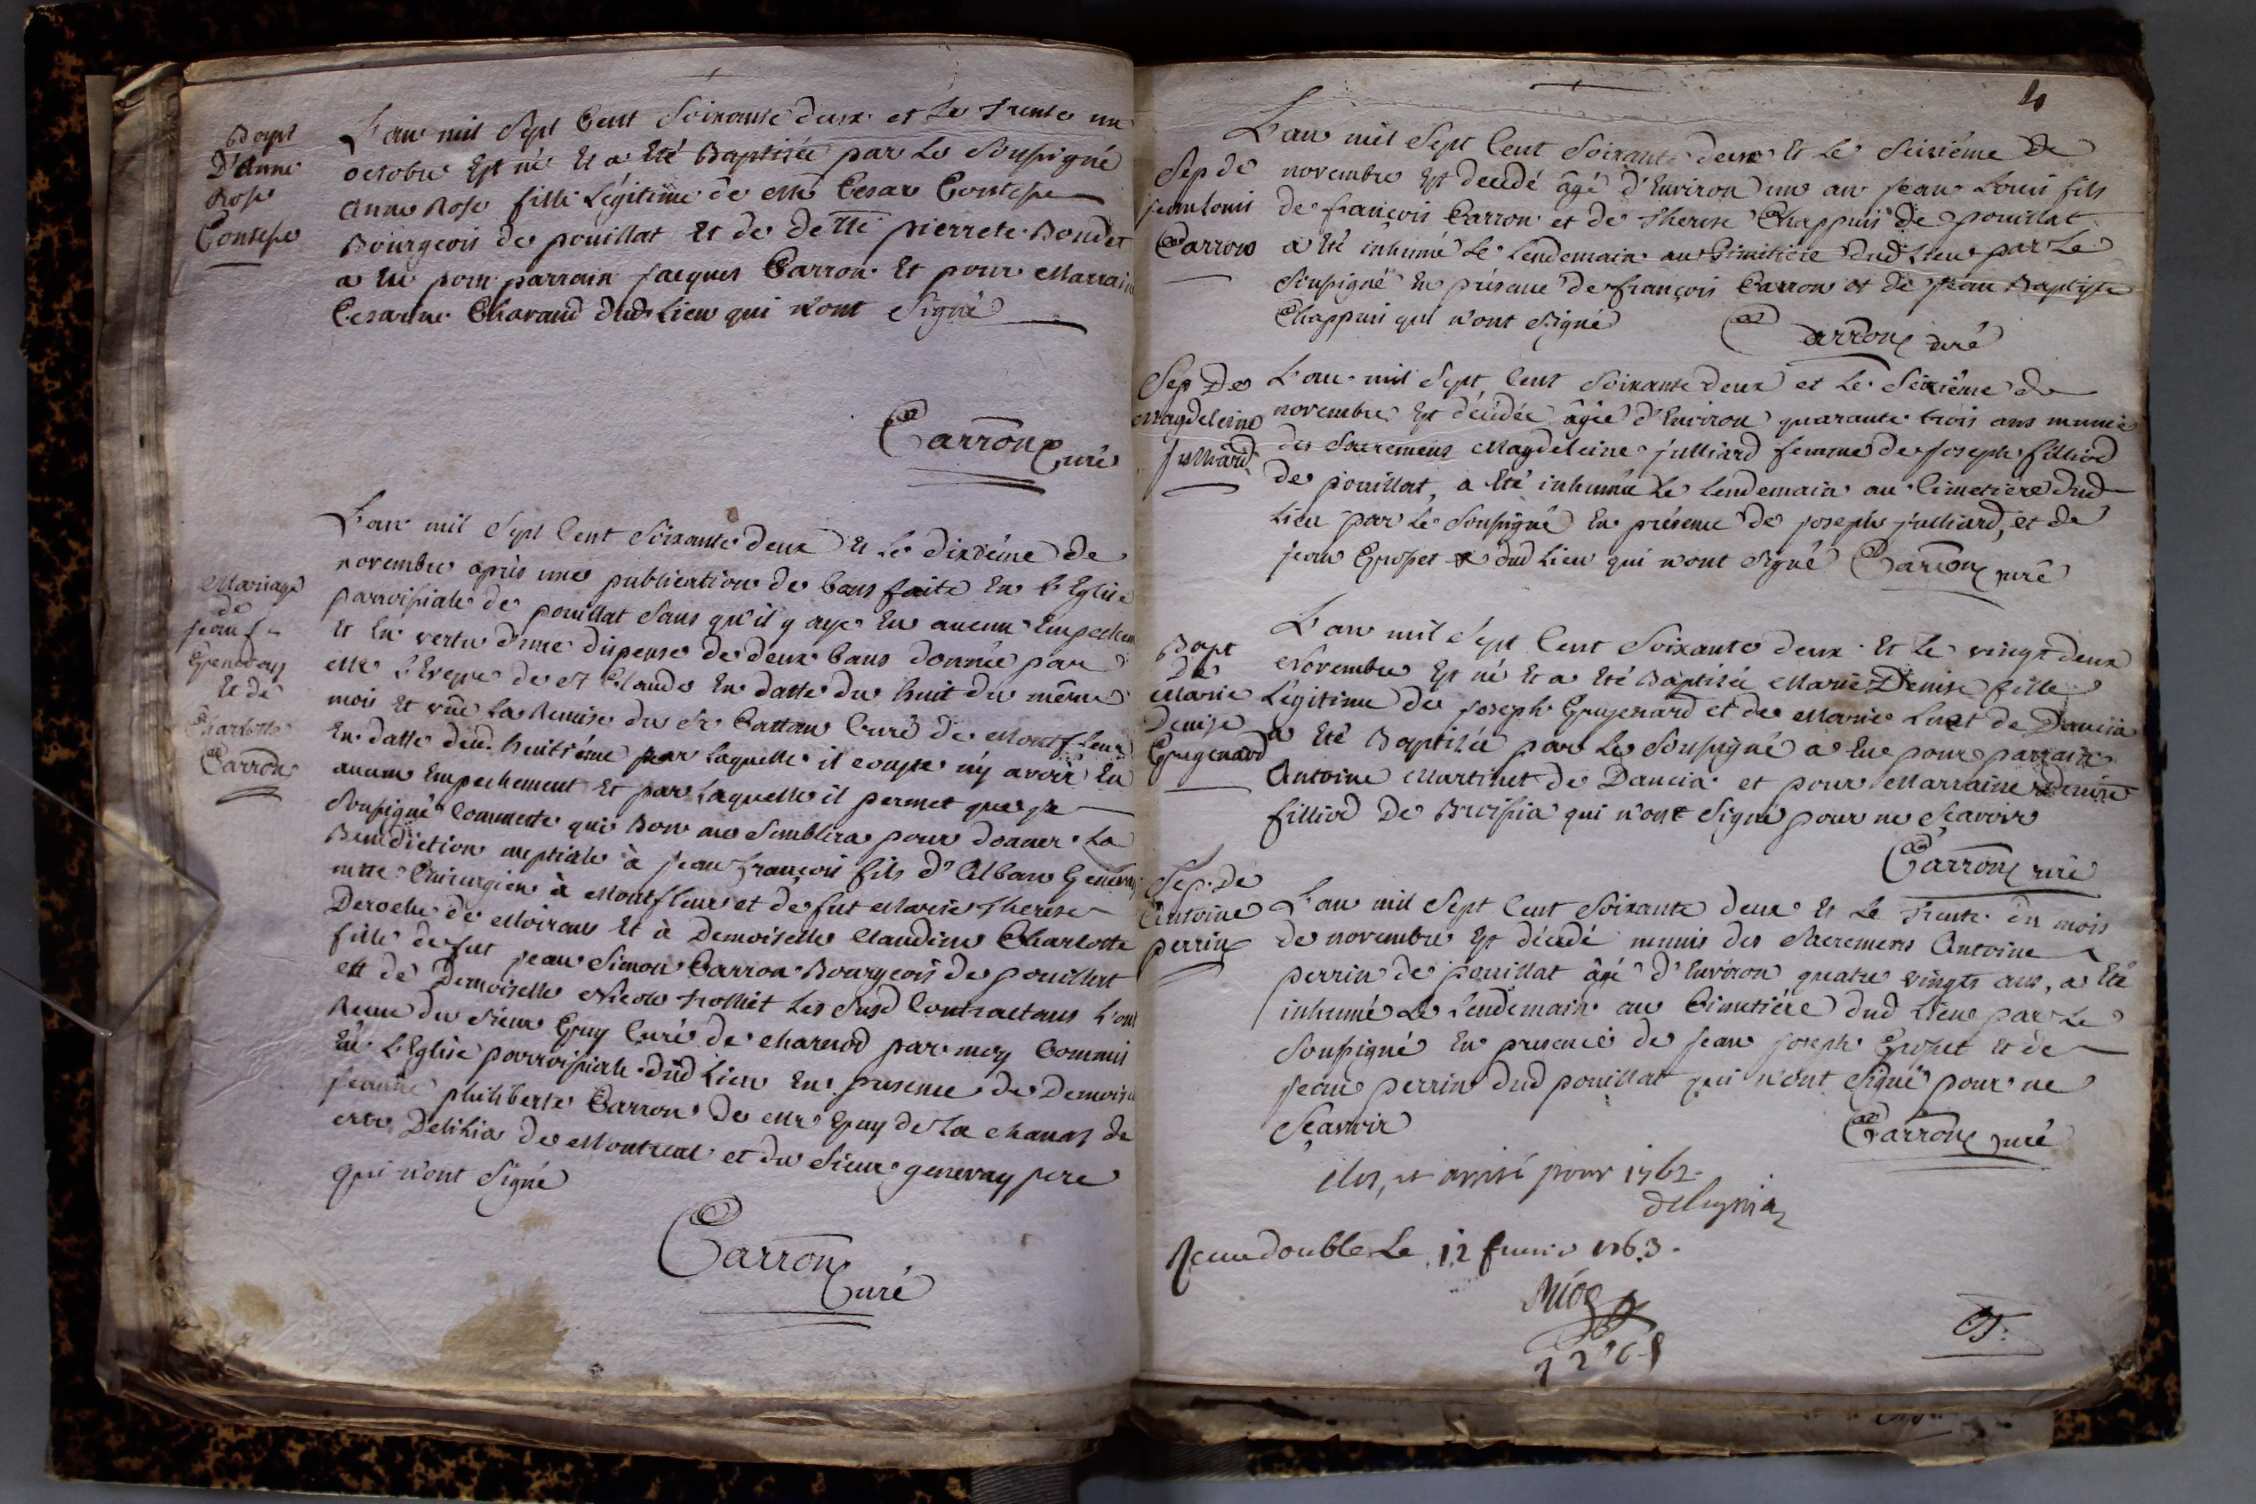 Bapt
D'Anne
Rose
Contesse
L'an mil Sept Cent Soixante deux et Le trente un
octobre Est né Et a Eté Baptisée par Le Soussigné
Anne Rose fille Légitime de Mr Cesar Contesse
Bourgeois de pouillat Et de delle pierrete Bondet
a Eu pour parrain jacques Carron Et pour Marraine
Cesarine Charaud dud Lieu qui n'ont Signé
Carron Curé
Mariage
de
jean f
Genevay
Et de
Charlotte
Carron
L'an mil Sept Cent Soixante deux Et Le dixième de
novembre après une publication de bans faite En L'Eglise
parroissiale de pouillat Sans qu'il y aye Eu aucun Empechem
Et En vertu d'une dispense de deux bans donnée par
Mr L'Eveque de St Claude En datte du huit du même
mois Et vûe La Remise du Sr Cattan Curé de Montfleur
En datte dud. huitième par Laquelle il conste n'y avoir Eu
aucun Empechement Et par Laquelle il permet que je
Soussigné Commette qui Bon me Semblera pour donner La
Benediction nuptiale à jean françois fils d'Alban Genevay
mtre Chirurgien à Montfleur et de fut Marie Therese
Deroche de Moirans Et à Demoiselle Claudine Charlotte
fille de fut jean Simon Carron Bourgeois de pouillat
et de Demoiselle Nicole trolliet Les Susd Contractans L'ont
Recue du Sieur Guy Curé de Charnod par moy Commis
En L'Eglise parroissiale dud Lieu En presence de Demoise
jeanne philiberte Carron de Mr Guy de La
Delilia de Montreal et du Sieur genevay pere
qui n'ont Signé
Carron
Curé
L'an mil Sept Cent Soixante deux Et Le Seizième de
novembre Est decedé âgé d'Environ un an jean Louis fils
de françois Carron et de Therese Chappuis de pouillat
a Eté inhumé Le Lendemain au Cimitiere dud Lieu par Le
Soussigné En présence de françois Carron et de jean Baptiste
Chappuis qui n'ont Signé Carron curé
Sep de
jean louis
Carron
Sep De
Magdeleine
julliard
L'an mil Sept Cent Soixante deux et Le Seizième de
novembre Est décédée âgée d'Environ quarante trois ans munie
des Sacremens Magdeleine julliard femme de joseph filliod
de pouillat, a Eté inhumée Le Lendemain au Cimetiere dud
Lieu par Le Soussigné En présence de joseph julliard, et de
jean Grospet dud Lieu qui n'ont Signé Carron curé
Bapt
De
Marie
Denise
Gugenard
L'an mil Sept Cent Soixante deux Et Le vingt deux
Novembre Est né Et a Eté Baptisée Marie Denise fille
Légitime de joseph Gugenard et de Marie Luat de Dancia
a Eté Baptisée par Le Soussigné a Eue pour parrain
Antoine Martinet de Dancia et pour Marraine denise
filliod De Broissia qui n'ont Signé pour ne Scavoir
Carron curé
Sep. de
Antoine
perrin
L'an mil Sept Cent Soixante deux Et Le trente du mois
de novembre Est décedé munis des Sacremens Antoine
perrin de pouillat âgé d'Environ quatre vingts ans, a Eté
inhumé Le Lendemain au Cimetière dud Lieu par Le
Soussigné En presence de jean joseph Gropet Et de
jean perrin dud pouillat qui n'ont Signé pour ne
Scavoir Carron curé
Clos, et arrêté pour 1762
Recu double Le 12 1763